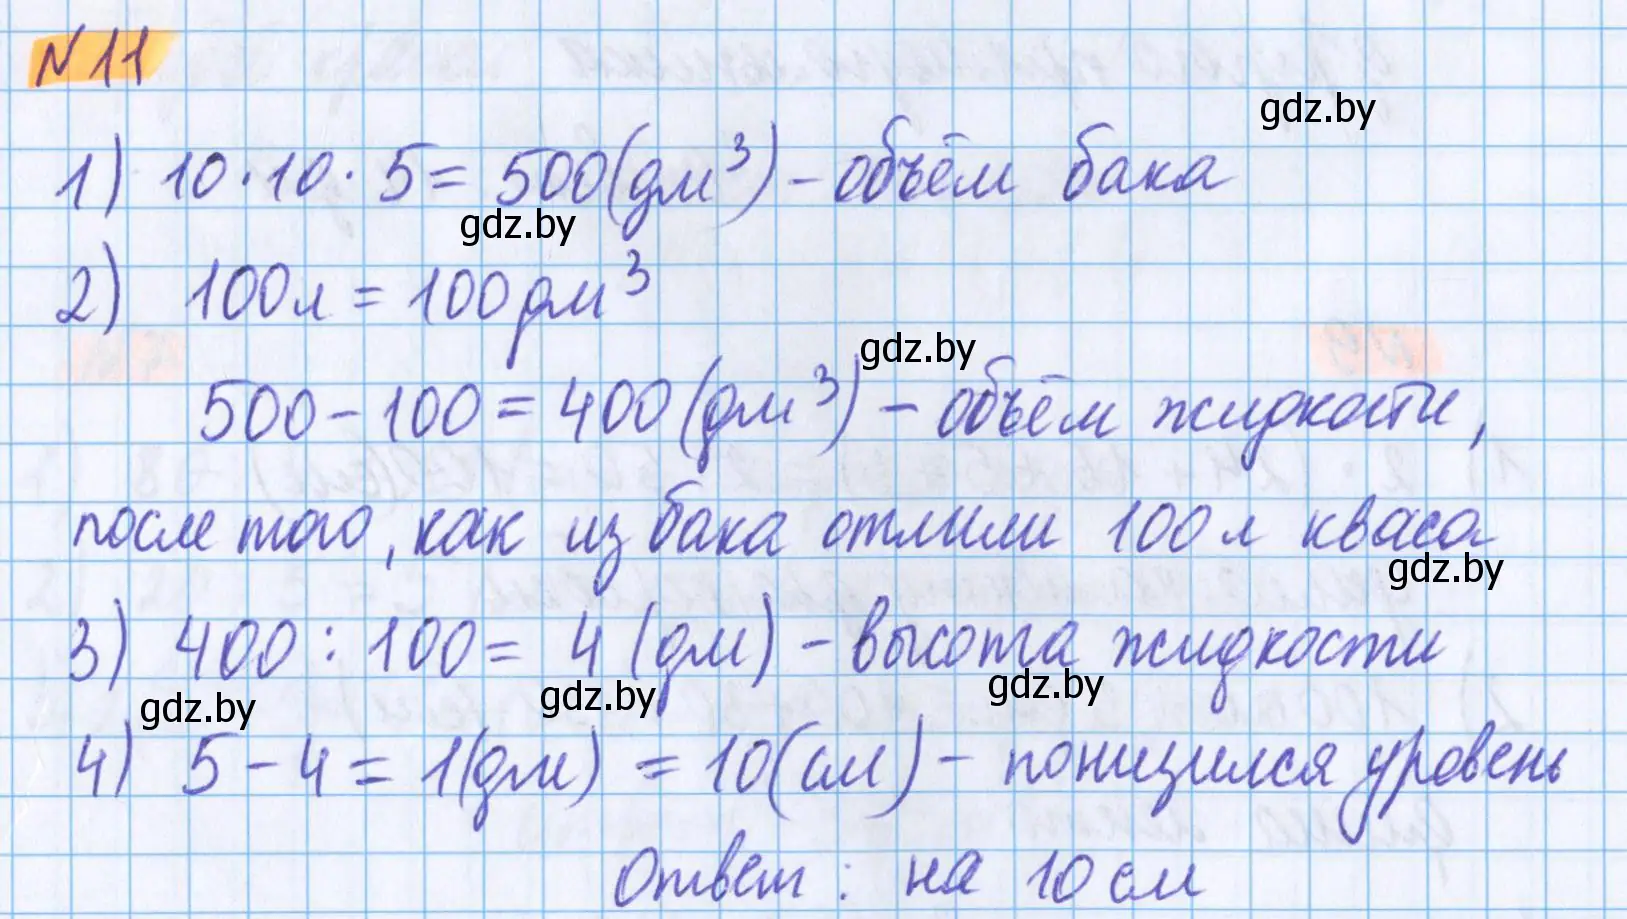 N 11
gdz.by
1) 10 · 10 · 5 = 500 (дм³) - объём бака
gdz.by
2) 100 л = 100 дм³
gdz.by
500 - 100 = 400 (дм³) - объём жидкости,
после того, как из бака отлили 100 л кваса
gdz.by
3) 400 : 100 = 4 (дм) - высота жидкости
gdz.by gdz.by gdz.by
4) 5 - 4 = 1 (дм) = 10 (см) - понизился уровень
Ответ: на 10 см